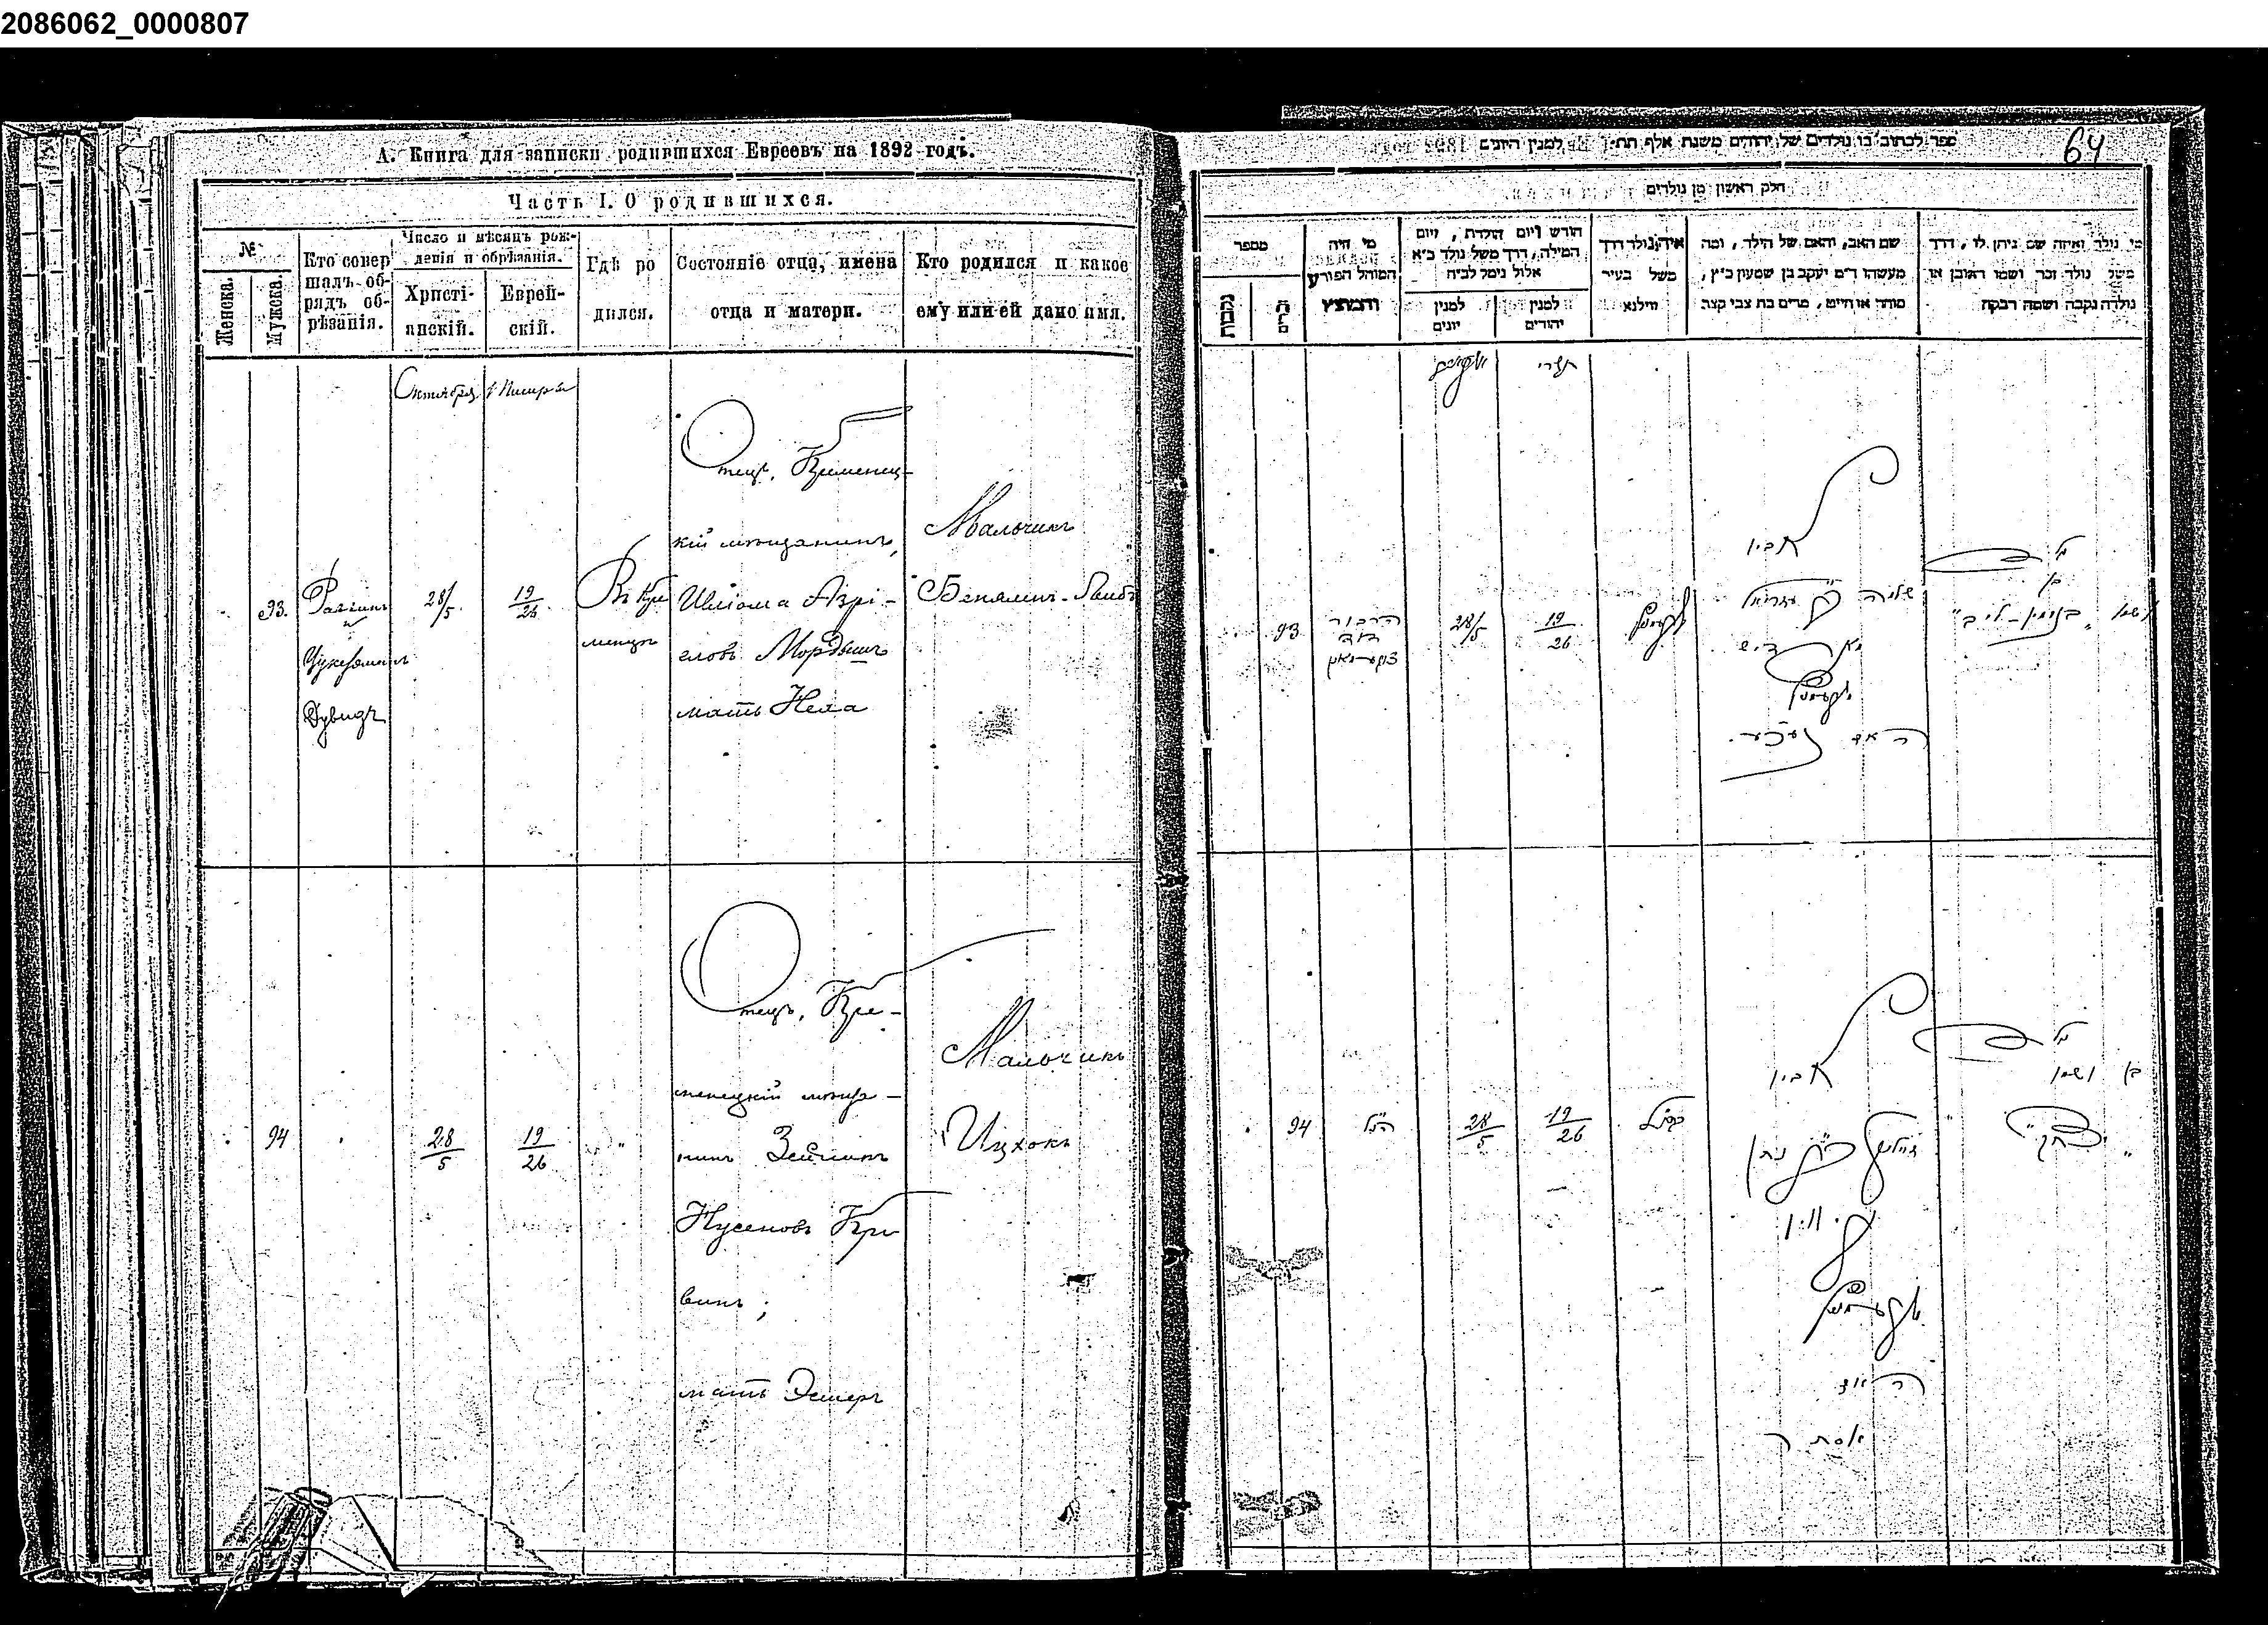 2086062_0000807
А. Книга для записки родившихся Евреевъ на 1892 годъ.
Часть I. О родившихся.
№
Женска.
Мужска.
Кто совер
шалъ об-
рядъ об-
рѣзанія.
Число и мѣсяцъ рож-
денія и обрѣзанія.
Христі-
анскій.
Еврей-
скій.
Гдѣ ро
дился.
Состояніе отца, имена
отца и матери.
Кто родился и какое
ему или ей дано имя.
Октября
93.
Раввинъ
Цукерманъ
Дувидъ
28/5
19/26
Въ Кре
менцѣ
Отецъ, Кременец-
кій мѣщанинъ,
Шлiома Азрі-
еловъ Мордышъ
мать Неха
Мальчикъ
Беняминъ-Лейбъ
94
28/5
19/26
"
Отецъ, Кре-
менецкій мѣща-
нинъ Зейликъ
Нусеновъ Кри
винъ;
мать Эстеръ
Мальчикъ
Ицхокъ
64
חלק ראשון מן נולדים
מספר
נקבות
זכרים
מי היה
המוהל הפורע
והמוצץ
חודש ויום הולדת, ויום
המילה, דרך משל נולד כ״א
אלול נימל לכ״ח
למנין
יונים
למנין
יהודים
איה נולד דרך
משל בעיר
ווילנא
שם האב, והאם של הילד, ומה
מעשהו ד״מ יעקב בן שמעון כ״ץ,
סוחר או חייט, מרים בת צבי קצב
מי נולד ואיזה שם ניתן לו, דרך
משל נולד זכר ושמו ראובן או
נולדה נקבה ושמה רבקה
תשרי
93
הרב ור
דוד
צוקערמאן
28/5
19/26
אביו
שלמה ב״ר עזריאל
האם נעכע
בן
ושמו "בנימין-ליב"
94
הנ״ל
28/5
19/26
אביו
זיילוג ב״ר נתן
האם
אסתר
בן ושמו
"יצחק"